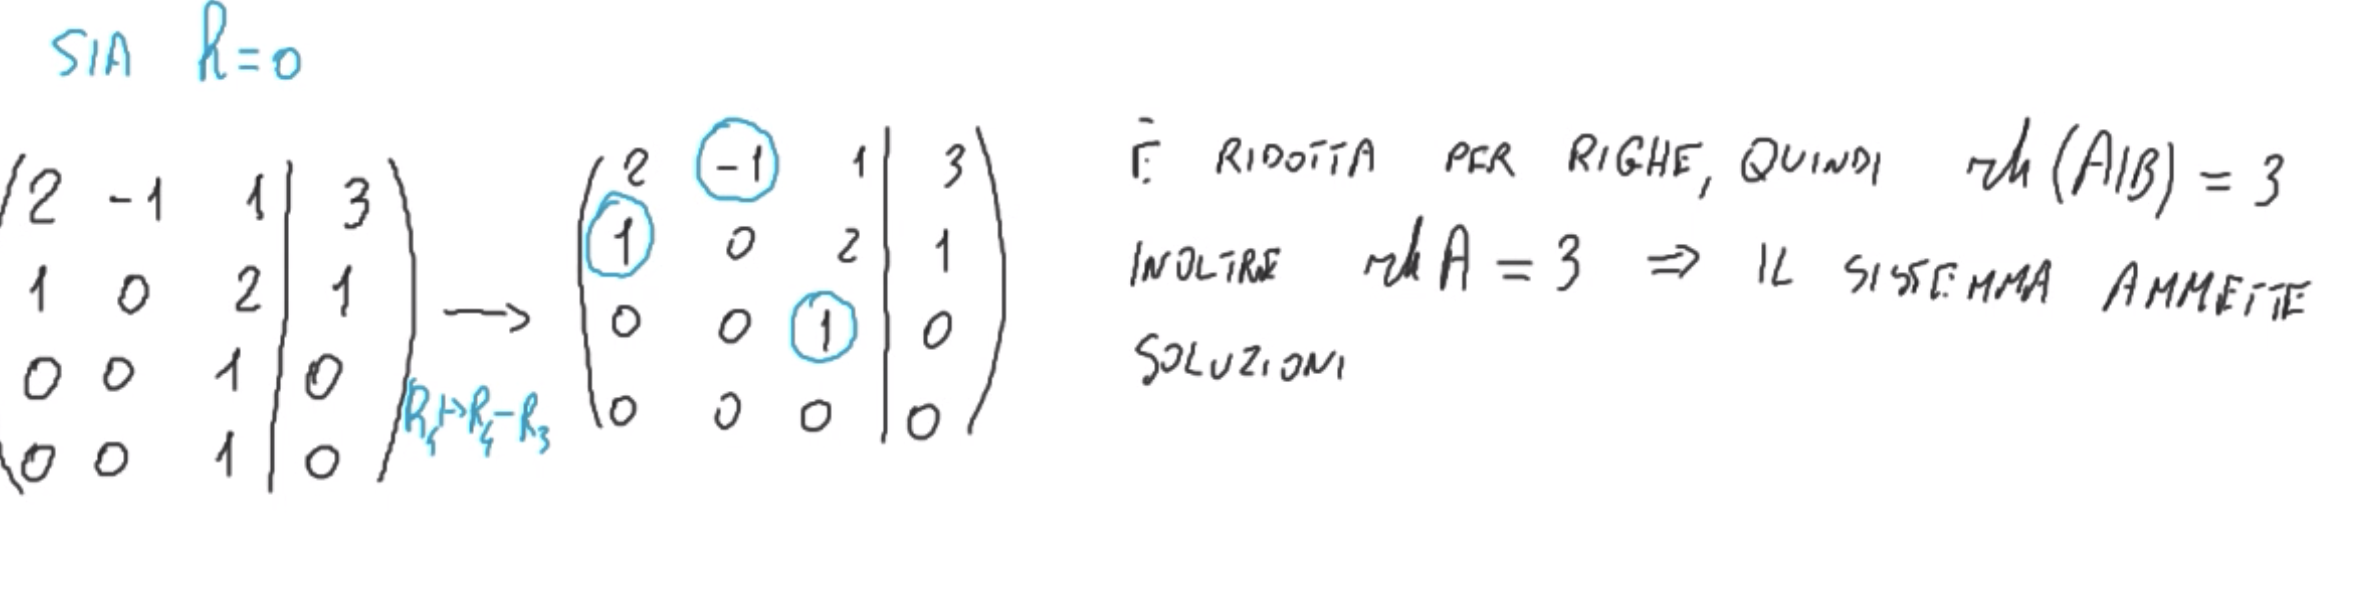 SIA k=0
2 -1 1 | 3
1 0 2 | 1
0 0 1 | 0
0 0 1 | 0
→
R₄↦R₄-R₃
2 -1 1 | 3
1 0 2 | 1
0 0 1 | 0
0 0 0 | 0
È RIDOTTA PER RIGHE, QUINDI rk (A|B) = 3
INOLTRE rk A = 3 ⇒ IL SISTEMMA AMMETTE
SOLUZIONI